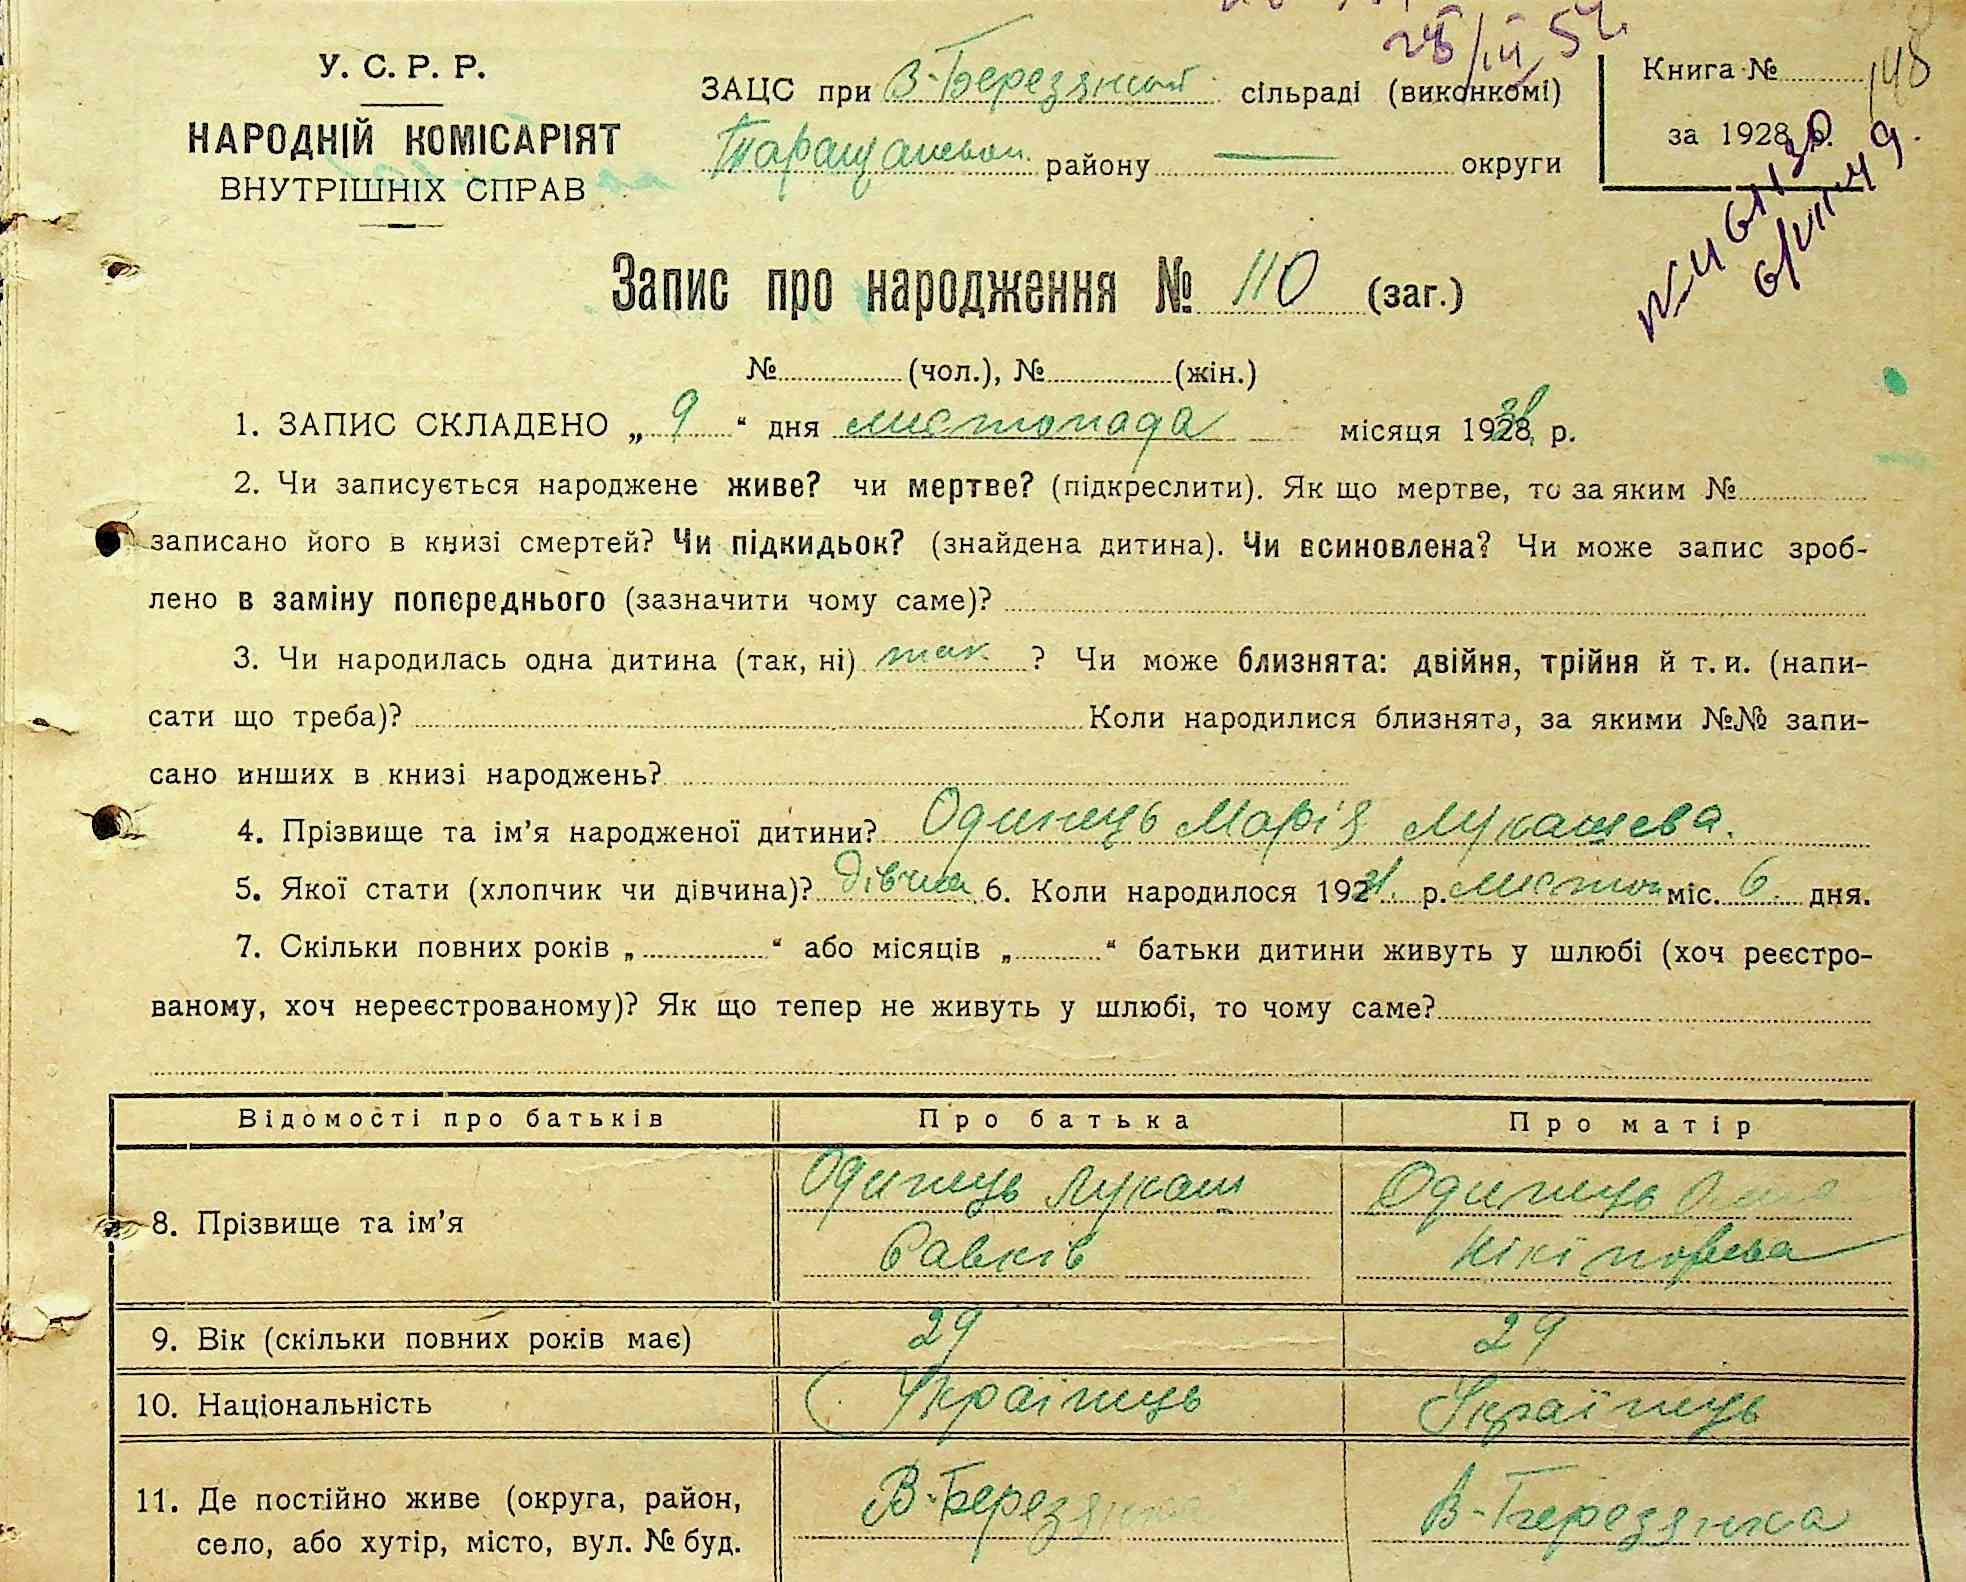 28/III 54
У. С. Р. Р.
НАРОДНІЙ КОМІСАРІЯТ
ВНУТРІШНІХ СПРАВ
ЗАЦС при В-Березянській сільраді (виконкомі)
Таращанськ. району — округи
Книга № 148
за 1928 р.
Запис про народження № 110 (заг.)
№ (чол.), № (жін.)
1. ЗАПИС СКЛАДЕНО „ 9 “ дня листопада місяця 1931 р.
2. Чи записується народжене живе? чи мертве? (підкреслити). Як що мертве, то за яким №
записано його в книзі смертей? Чи підкидьок? (знайдена дитина). Чи всиновлена? Чи може запис зроб-
лено в заміну попереднього (зазначити чому саме)?
3. Чи народилась одна дитина (так, ні) так ? Чи може близнята: двійня, трійня й т. и. (напи-
сати що треба)? Коли народилися близнята, за якими №№ запи-
сано инших в книзі народжень?
4. Прізвище та ім’я народженої дитини? Одинець Марія Лукашева.
5. Якої стати (хлопчик чи дівчина)? дівчина 6. Коли народилося 1931 р. листоп міс. 6 дня.
7. Скільки повних років „ “ або місяців „ “ батьки дитини живуть у шлюбі (хоч реєстро-
ваному, хоч нереєстрованому)? Як що тепер не живуть у шлюбі, то чому саме?
Відомості про батьків Про батька Про матір
8. Прізвище та ім’я Одинець Лукаш Одинець
Савків Нікіпорова
9. Вік (скільки повних років має) 29 29
10. Національність Українець Українець
11. Де постійно живе (округа, район, В-Березянка В-Березянка
село, або хутір, місто, вул. № буд.